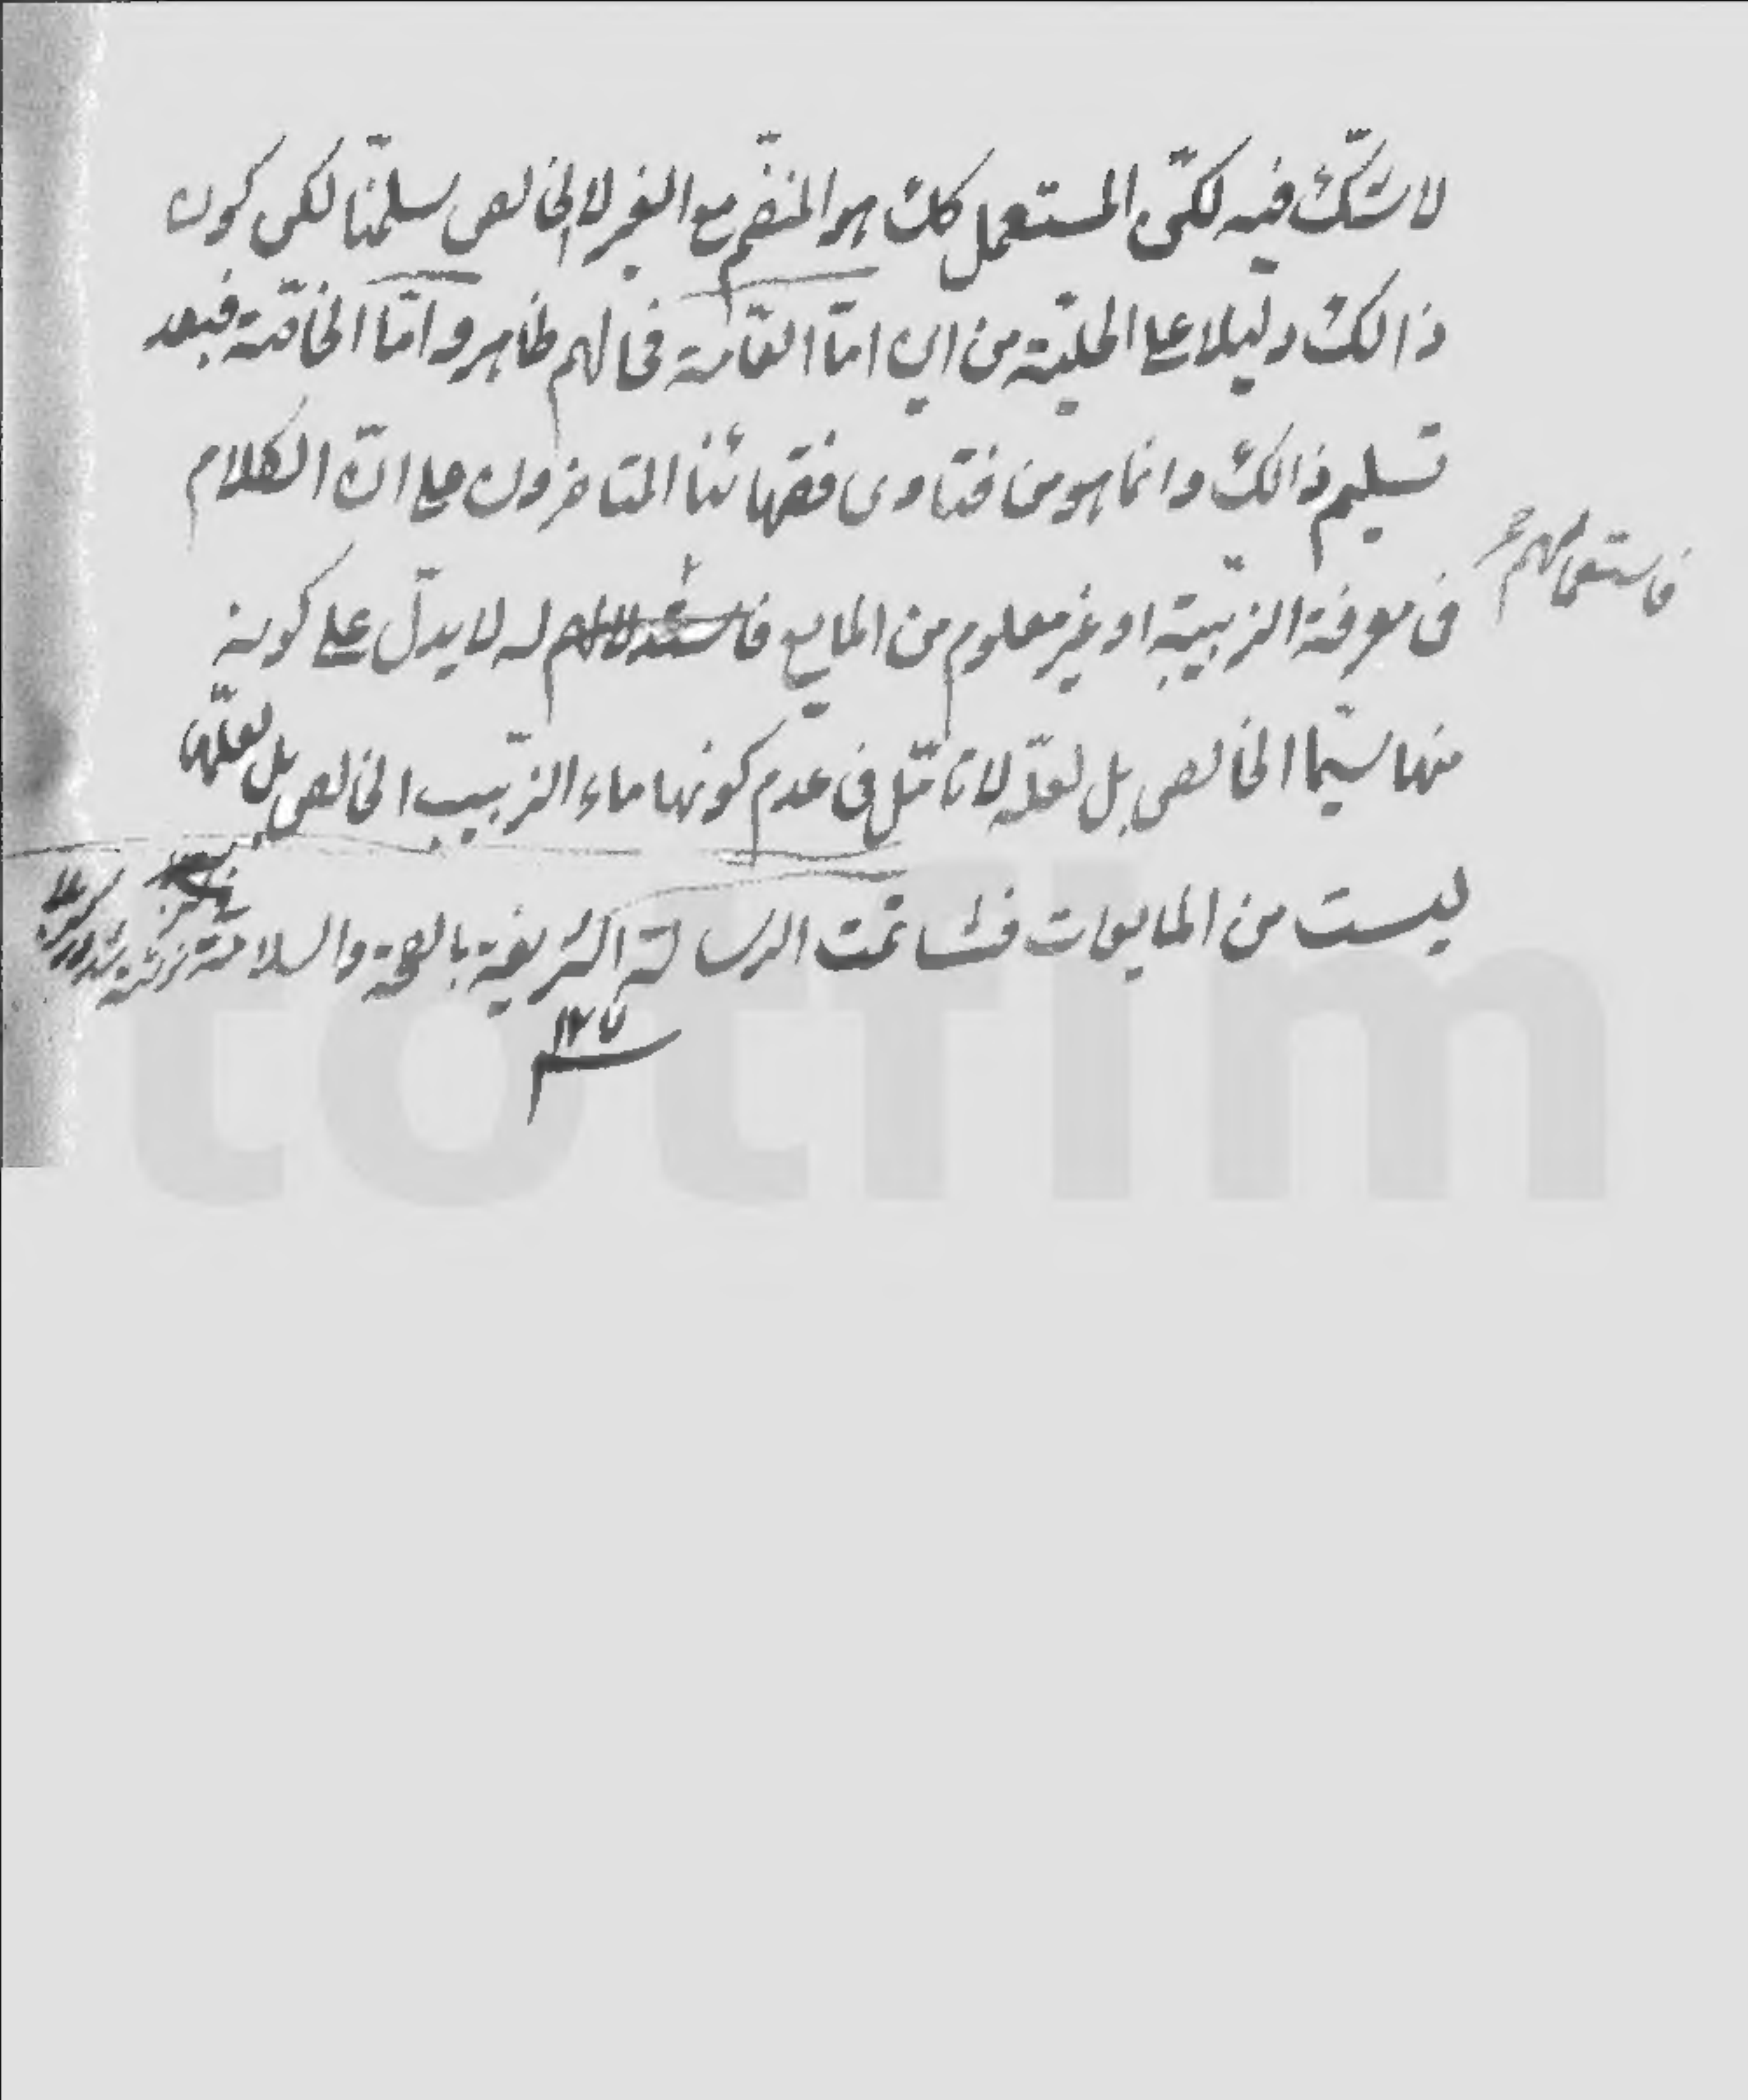 لا شكّ فيه لكنّ المستعمل كك هو المنضمّ مع الغير لا الخالص سلمنّا لكن كون
ذالك دليلا على الحليّة من اين امّا العامّة فحالهم ظاهر وامّا الخاصّة فبعد
تسليم ذالك وانما هو من فتاوى فقهائنا المتاخرون على انّ الكلام
فى معرفة الزبيبيّة او غير معلوم من المايع له لا يدلّ على كونه
فاستعمالهم
منها سيّما الخالص بل لعلّه لا تامّل فى عدم كونها ماء الزّبيب الخالص بل لعلّها
ليست من المايعات تمّت الرسالة الشريفة بالصحة والسلامة